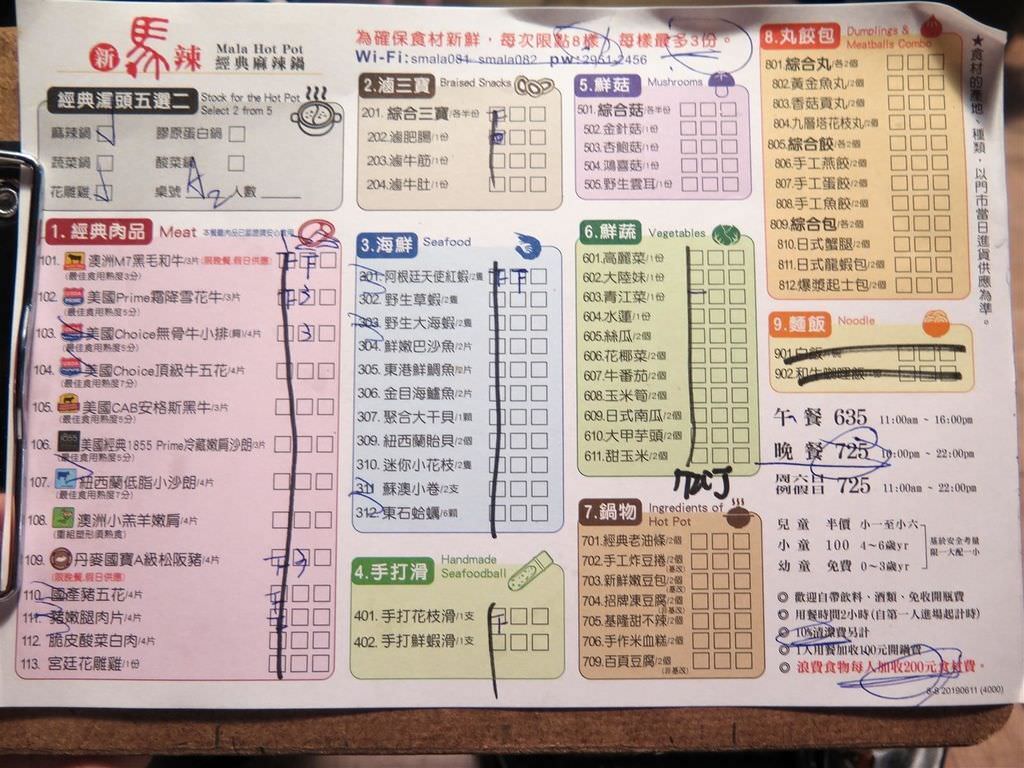 新馬辣
Mala Hot Pot
經典麻辣鍋
為確保食材新鮮，每次限點8樣，每樣最多3份。
Wi-Fi:smala081 smala082 pw:29512456
經典湯頭五選二 Stock for the Hot Pot
Select 2 from 5
麻辣鍋 膠原蛋白鍋
蔬菜鍋 酸菜鍋
花雕雞 桌號 A2 人數
1. 經典肉品 Meat
101. 澳洲M7黑毛和牛/3片(限晚餐.假日供應)
(最佳食用熟度3分)
102. 美國Prime霜降雪花牛/3片 3
(最佳食用熟度5分)
103. 美國Choice無骨牛小排(肩)/4片 3
(最佳食用熟度5分)
104. 美國Choice頂級牛五花/4片
(最佳食用熟度7分)
105. 美國CAB安格斯黑牛/3片
(最佳食用熟度5分)
106. 美國經典1855 Prime冷藏嫩肩沙朗/3片
(最佳食用熟度5分)
107. 紐西蘭低脂小沙朗/4片
(最佳食用熟度7分)
108. 澳洲小羔羊嫩肩/4片
(重組塑形須熟食)
109. 丹麥國寶A級松阪豬/4片 3
(限晚餐.假日供應)
110. 國產豬五花/4片
111. 豬嫩腿肉片/4片
112. 脆皮酸菜白肉/4片
113. 宮廷花雕雞/1份
2. 滷三寶 Braised Snacks
201. 綜合三寶/各半份
202. 滷肥腸/1份
203. 滷牛筋/1份
204. 滷牛肚/1份
3. 海鮮 Seafood
301. 阿根廷天使紅蝦/2隻
302. 野生草蝦/2隻
303. 野生大海蝦/2隻
304. 鮮嫩巴沙魚/2片
305. 東港鮮鯛魚/2片
306. 金目海鱸魚/2片
307. 聚合大干貝/1顆
309. 紐西蘭貽貝/2個
310. 迷你小花枝/2隻
311. 蘇澳小卷/2支
312. 東石蛤蠣/6顆
4. 手打滑 Handmade
Seafoodball
401. 手打花枝滑/1支
402. 手打鮮蝦滑/1支
5. 鮮菇 Mushrooms
501. 綜合菇/各半份
502. 金針菇/1份
503. 杏鮑菇/1份
504. 鴻喜菇/1份
505. 野生雲耳/1份
6. 鮮蔬 Vegetables
601. 高麗菜/1份
602. 大陸妹/1份
603. 青江菜/1份
604. 水蓮/1份
605. 絲瓜/2個
606. 花椰菜/2個
607. 牛番茄/2個
608. 玉米筍/2個
609. 日式南瓜/2個
610. 大甲芋頭/2個
611. 甜玉米/2個
7. 鍋物 Ingredients of
Hot Pot
701. 經典老油條/2個
702. 手工炸豆捲/2個
(非基改)
703. 新鮮嫩豆包/2個
(非基改)
704. 招牌凍豆腐/2個
(非基改)
705. 基隆甜不辣/2個
706. 手作米血糕/2個
709. 百頁豆腐/2個
(非基改)
8. 丸餃包 Dumplings &
Meatballs Combo
801. 綜合丸/各2個
802. 黃金魚丸/2個
803. 香菇貢丸/2個
804. 九層塔花枝丸/2個
805. 綜合餃/各2個
806. 手工燕餃/2個
807. 手工蛋餃/2個
808. 手工魚餃/2個
809. 綜合包/各2個
810. 日式蟹腿/2個
811. 日式龍蝦包/2個
812. 爆漿起士包/2個
9. 麵飯 Noodle
901. 白飯
902. 和牛咖哩飯
午餐 635 11:00am ~ 16:00pm
晚餐 725 16:00pm ~ 22:00pm
周六日
例假日 725 11:00am ~ 22:00pm
兒童 半價 小一至小六
小童 100 4~6歲yr
幼童 免費 0~3歲yr
基於安全考量
限一大配一小
◎ 歡迎自帶飲料、酒類、免收開瓶費
◎ 用餐時間2小時(自第一人進場起計時)
◎ 10%清潔費另計
◎ 1人用餐加收100元開鍋費
◎ 浪費食物每人加收200元食材費。
8-8 20190611 (4000)
★食材的產地、種類，以門市當日進貨供應為準。